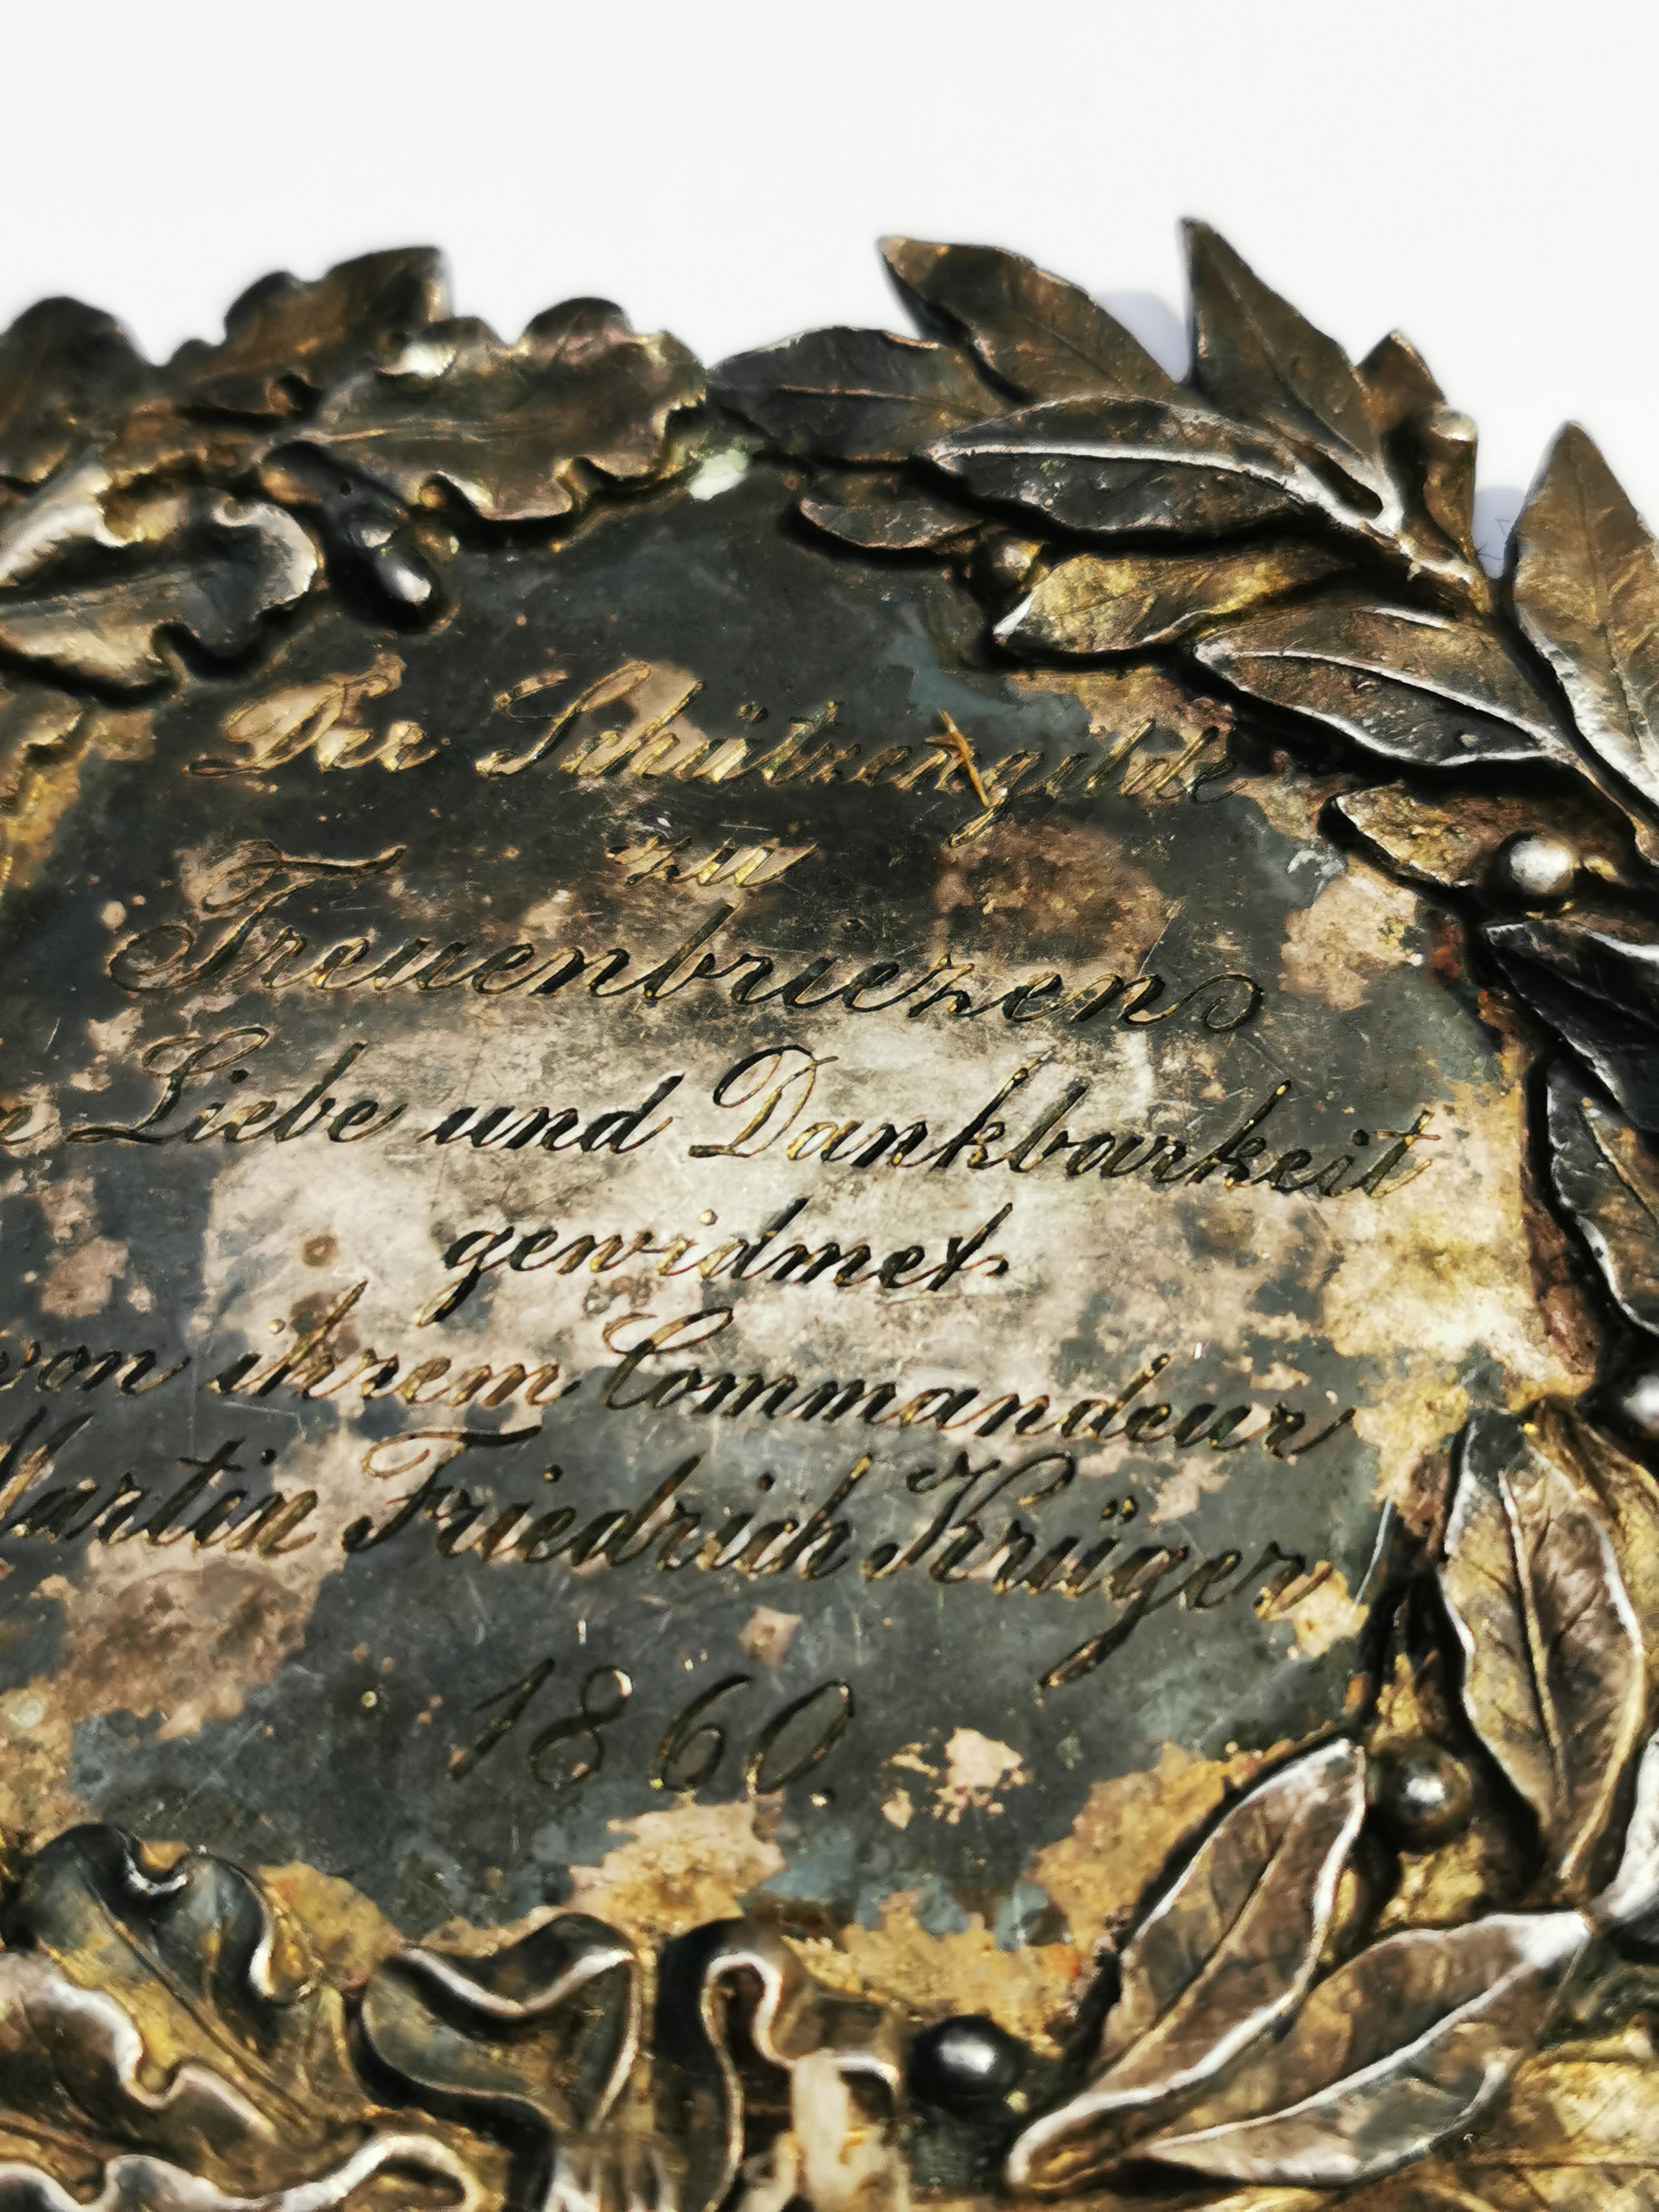 Der Schützengilde
zu
Treuenbriezen
Liebe und Dankbarkeit
gewidmet
von ihrem Commandeur
Martin Friedrich Krüger
1860.